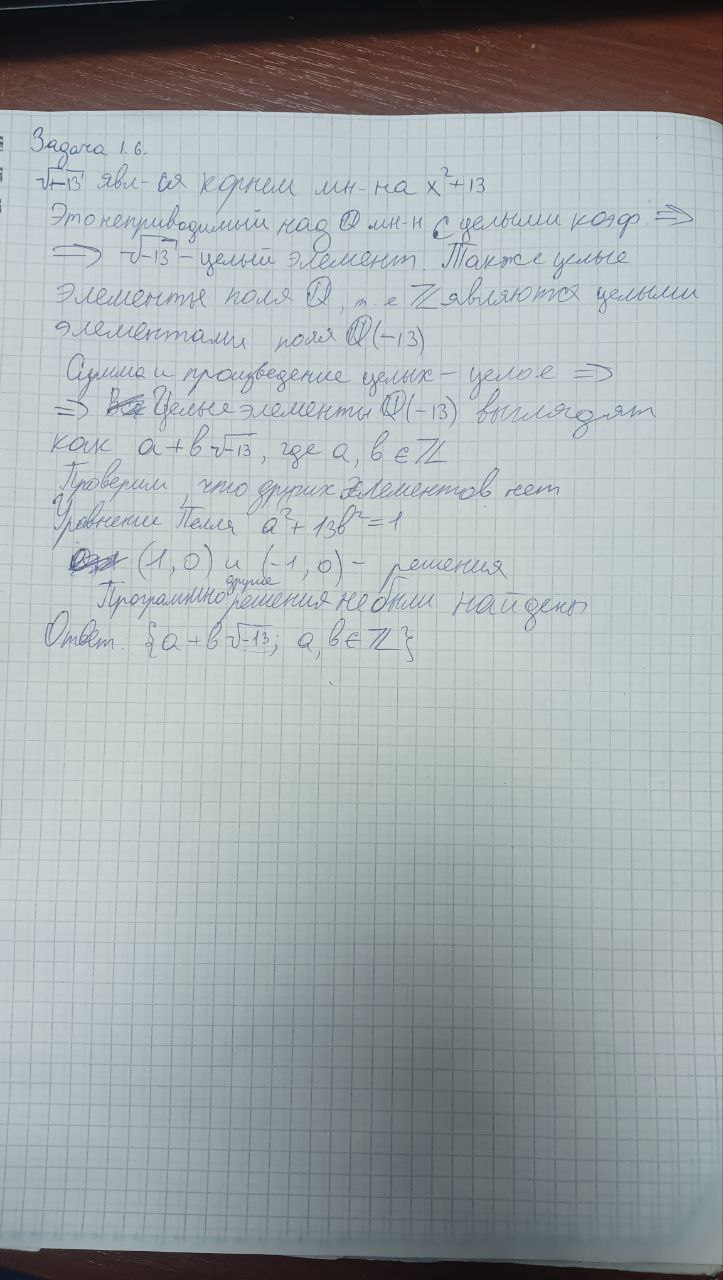 Задача 1.6.
√-13 явл-ся корнем мн-на x²+13
Это неприводимый над Q мн-н с целыми коэф. ⇒
⇒ √-13 – целый элемент. Также целые
элементы поля Q, т.е ℤ являются целыми
элементами поля Q(-13)
Сумма и произведение целых – целое ⇒
⇒ Целые элементы Q(-13) выглядят
как a+b√-13, где a, b ∈ ℤ
Проверим, что других элементов нет
Уравнение Пелля a²+13b²=1
(1, 0) и (-1, 0) – решения
Программно другие решения не были найдены
Ответ. {a+b√-13; a, b ∈ ℤ}